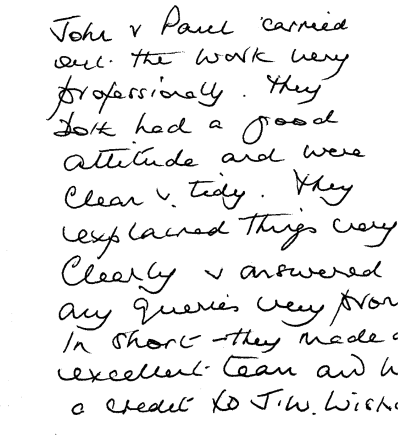 John & Paul carried
out the work very
professionally. They
both had a good
attitude and were
clean & tidy. They
explained things very
clearly & answered
any queries very
In short they made
excellent team and
a credit to J.W.